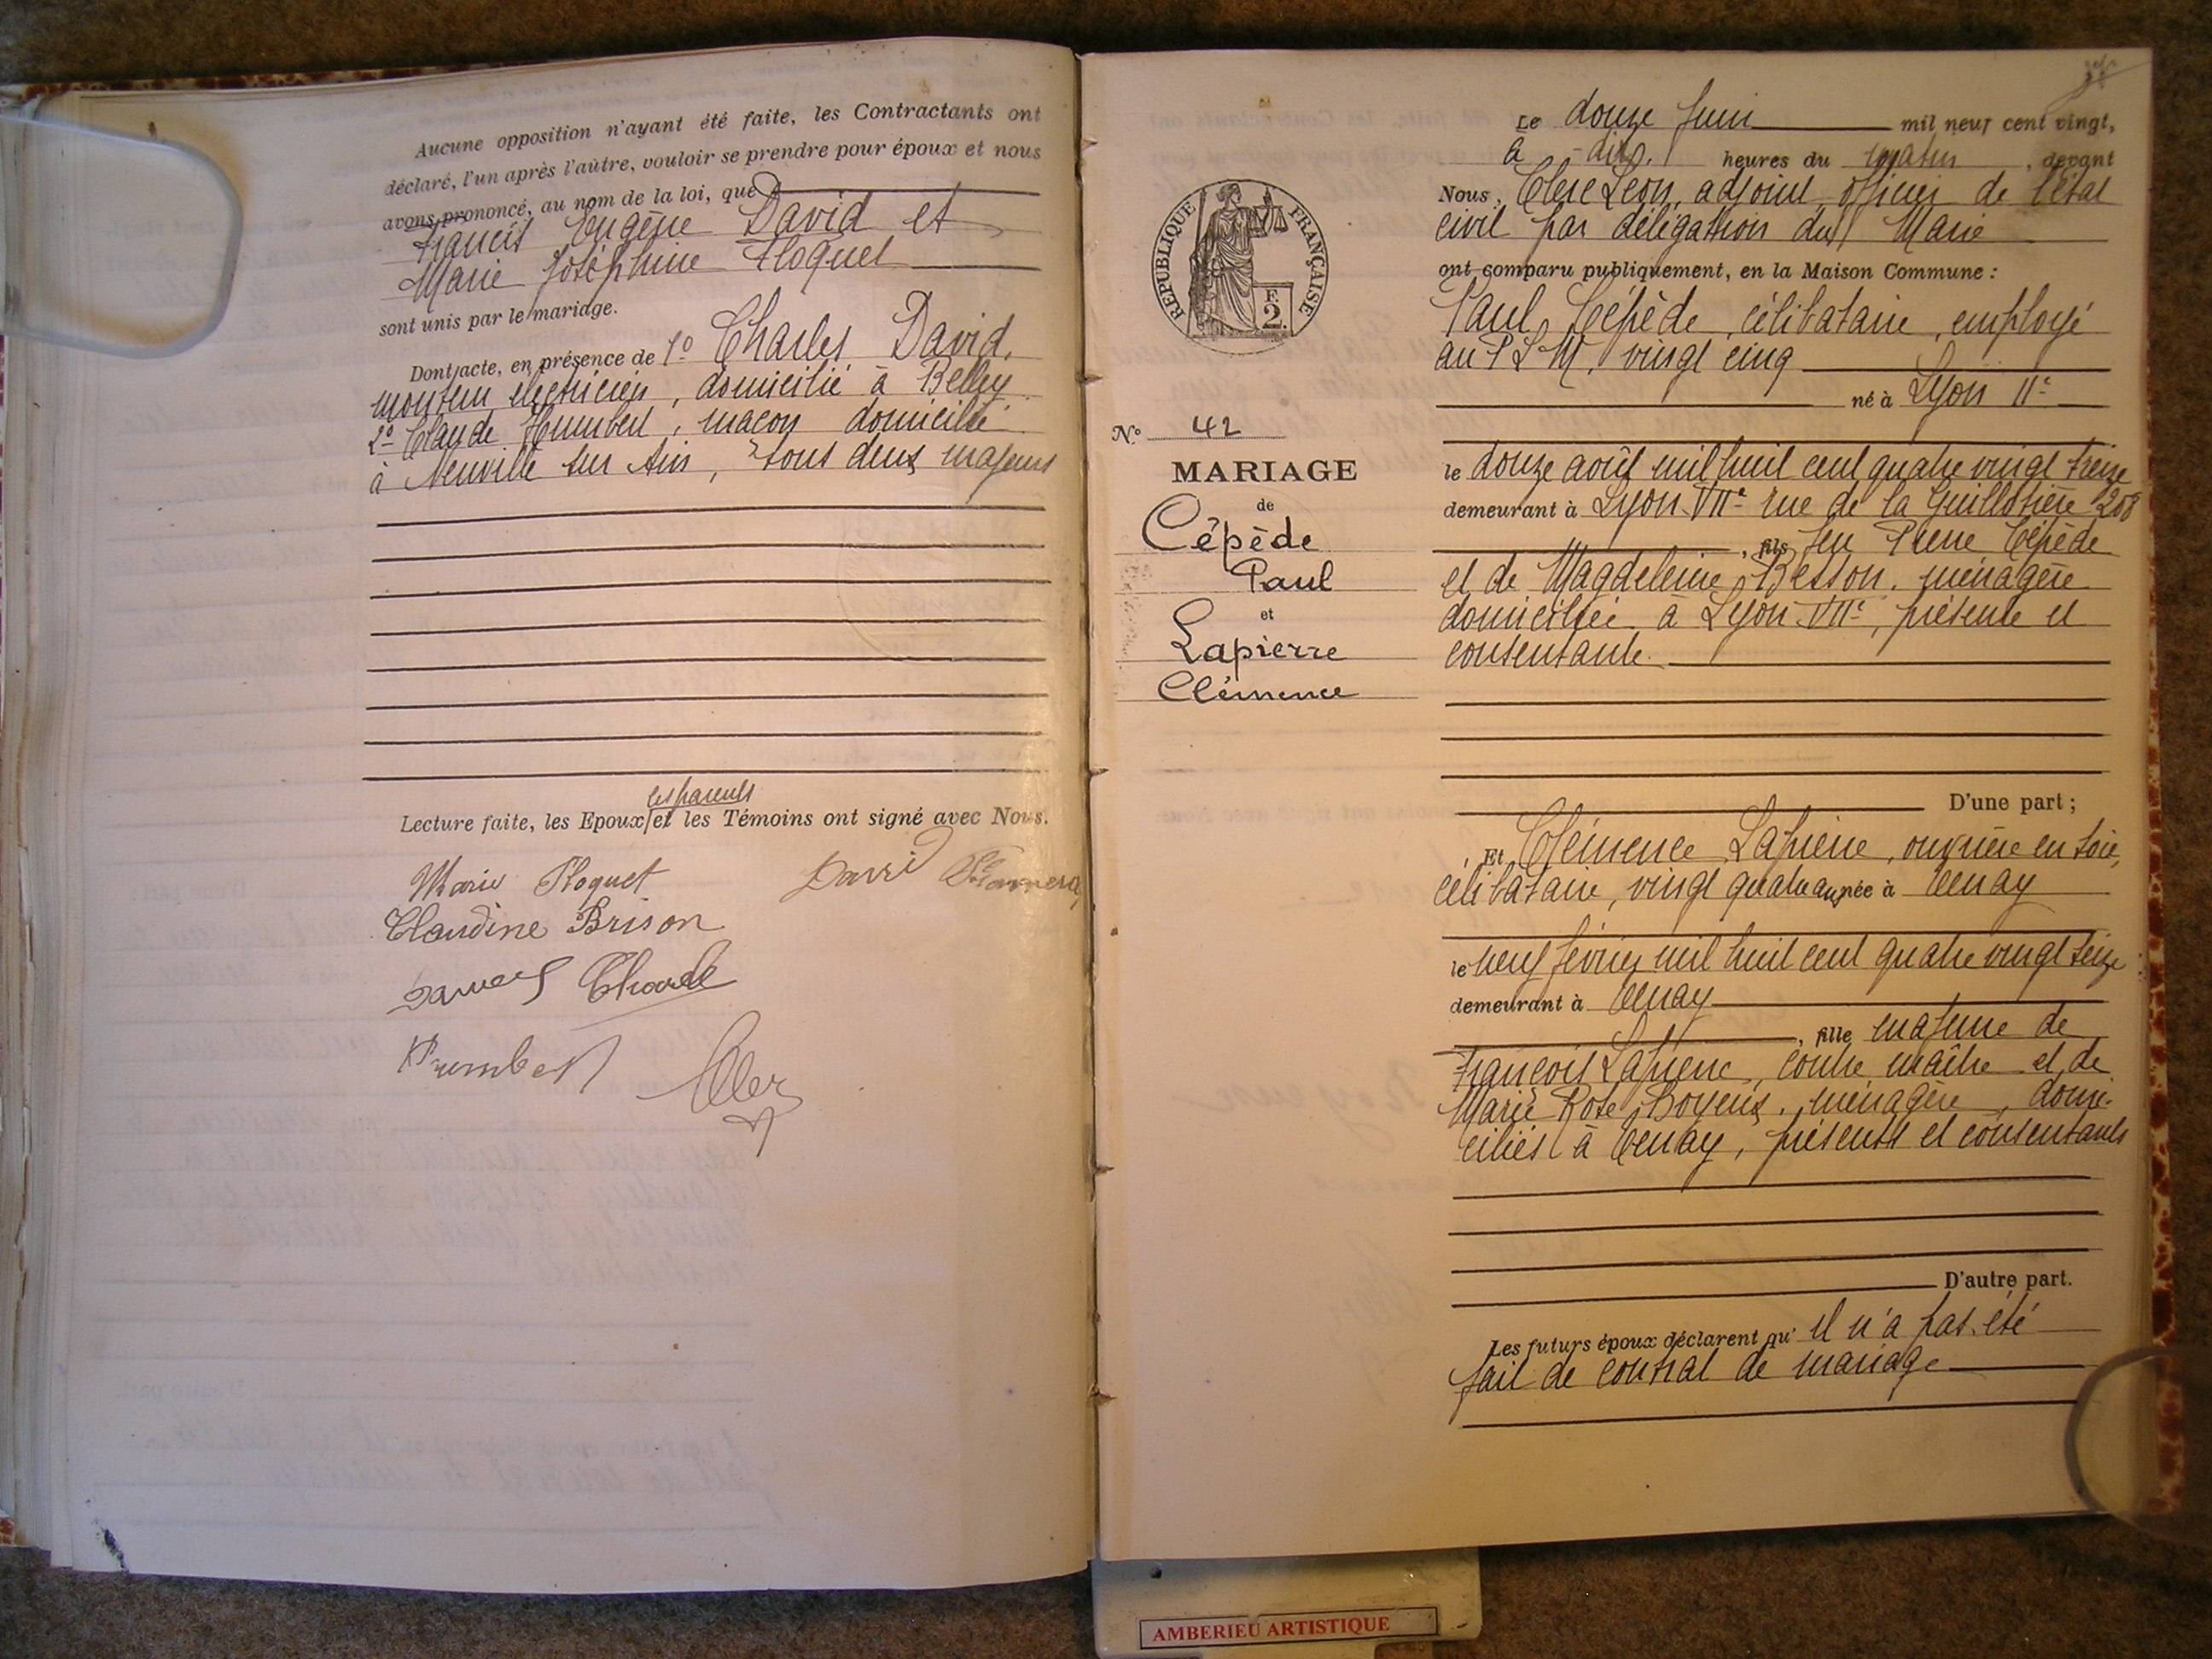 Aucune opposition n'ayant été faite, les Contractants ont
déclaré, l'un après l'autre, vouloir se prendre pour époux et nous
avons prononcé, au nom de la loi, que
Francis Eugène David et
Marie Joséphine Floquet
sont unis par le mariage.
Dont acte, en présence de 1º Charles David,
monteur électricien, domicilié à Belley
2º Claude Humbert, maçon domicilié
à Neuville sur Ain, tous deux majeurs
les parents
Lecture faite, les Epoux et les Témoins ont signé avec Nous.
Marie Floquet David
Claudine Brison
Humbert Clerc
Le douze Juin mil neuf cent vingt,
à dix heures du matin, devant
Nous, Clerc Léon, adjoint officier de l'état
civil par délégation du Maire
ont comparu publiquement, en la Maison Commune :
Paul Cépède, célibataire, employé
au P L M, vingt cinq
né à Lyon IIe
le douze août mil huit cent quatre vingt treize
demeurant à Lyon VIIe rue de la Guillotière 208
, fils feu Pierre Cépède
et de Magdeleine Besson, ménagère
domiciliée à Lyon VIIe, présente et
consentante.
D'une part ;
Et Clémence Lapierre, ouvrière en soie,
célibataire, vingt quatre ans née à Tenay
le neuf février mil huit cent quatre vingt seize
demeurant à Tenay
, fille majeure de
François Lapierre, contre maître et de
Marie Rose Boyeux, ménagère, domi-
ciliés à Tenay, présents et consentants
D'autre part.
Les futurs époux déclarent qu'il n'a pas été
fait de contrat de mariage
RÉPUBLIQUE FRANÇAISE
F.
2.
Nº 42
MARIAGE
de
Cépède
Paul
et
Lapierre
Clémence
AMBERIEU ARTISTIQUE